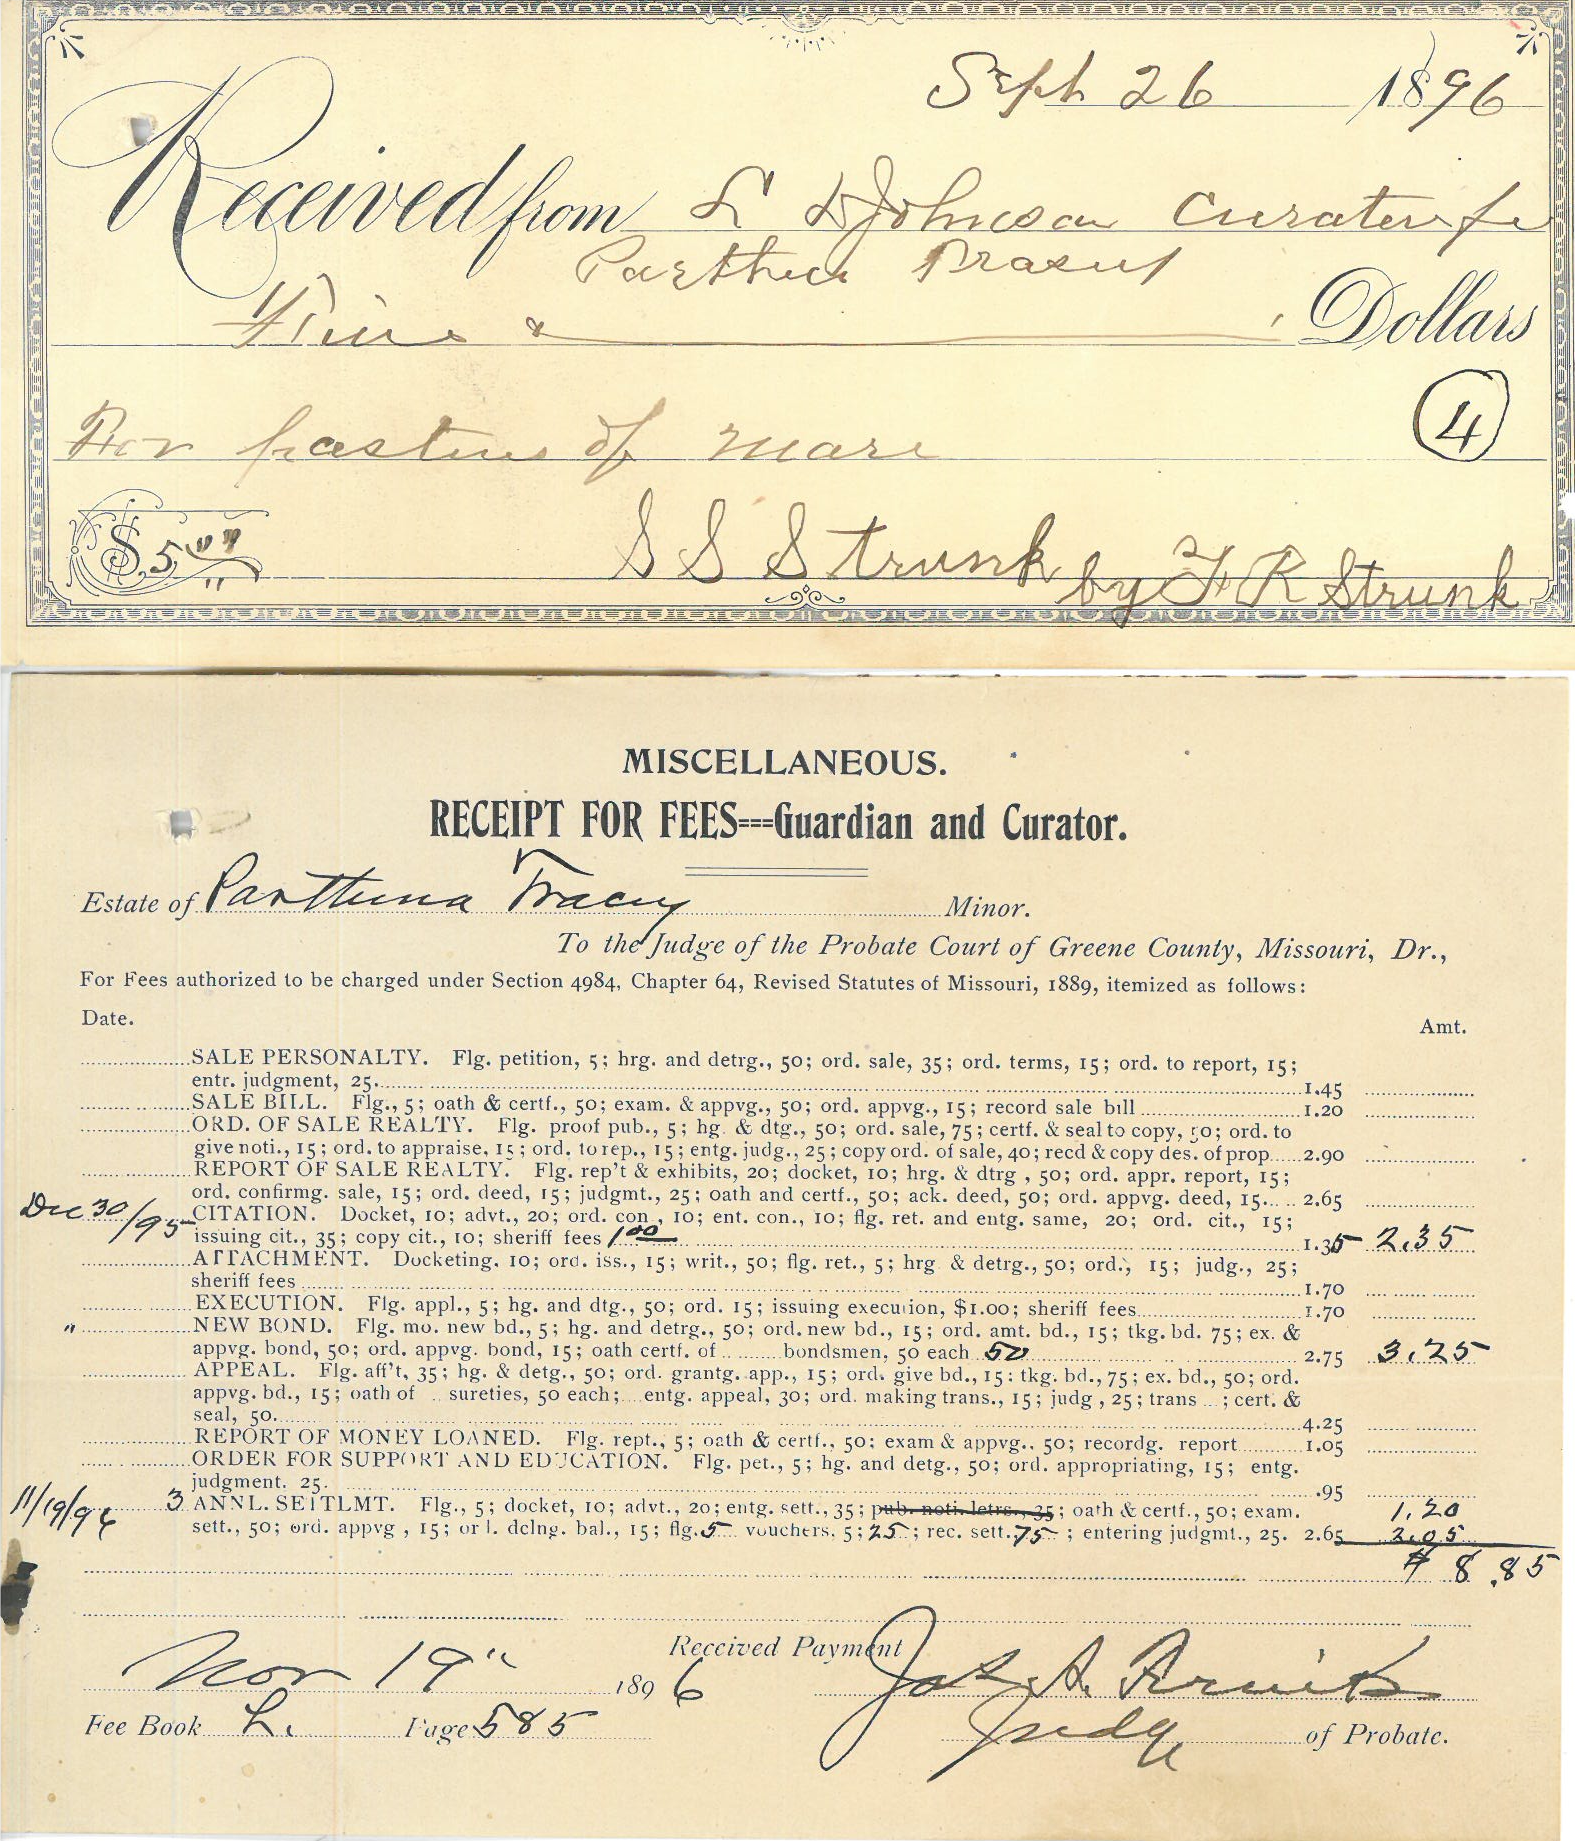 Sept 26 1896
Received from L D Johnson Curator for
Parthena Tracy
Five & Dollars
For pasture of mare
4
$ 5.00 S S Strunk by F R Strunk
MISCELLANEOUS.
RECEIPT FOR FEES===Guardian and Curator.
Estate of Parthena Tracy Minor.
To the Judge of the Probate Court of Greene County, Missouri, Dr.,
For Fees authorized to be charged under Section 4984, Chapter 64, Revised Statutes of Missouri, 1889, itemized as follows:
Date. Amt.
SALE PERSONALTY. Flg. petition, 5; hrg. and detrg., 50; ord. sale, 35; ord. terms, 15; ord. to report, 15;
entr. judgment, 25. 1.45
SALE BILL. Flg., 5; oath & certf., 50; exam. & appvg., 50; ord. appvg., 15; record sale bill 1.20
ORD. OF SALE REALTY. Flg. proof pub., 5; hg. & dtg., 50; ord. sale, 75; certf. & seal to copy, 50; ord. to
give noti., 15; ord. to appraise, 15; ord. to rep., 15; entg. judg., 25; copy ord. of sale, 40; recd & copy des. of prop. 2.90
REPORT OF SALE REALTY. Flg. rep't & exhibits, 20; docket, 10; hrg. & dtrg, 50; ord. appr. report, 15;
ord. confirmg. sale, 15; ord. deed, 15; judgmt., 25; oath and certf., 50; ack. deed, 50; ord. appvg. deed, 15. 2.65
Dec 30/95 CITATION. Docket, 10; advt., 20; ord. con., 10; ent. con., 10; flg. ret. and entg. same, 20; ord. cit., 15;
issuing cit., 35; copy cit., 10; sheriff fees 1.00 1.35 2.35
ATTACHMENT. Docketing. 10; ord. iss., 15; writ., 50; flg. ret., 5; hrg & detrg., 50; ord., 15; judg., 25;
sheriff fees 1.70
EXECUTION. Flg. appl., 5; hg. and dtg., 50; ord. 15; issuing execution, $1.00; sheriff fees 1.70
" NEW BOND. Flg. mo. new bd., 5; hg. and detrg., 50; ord. new bd., 15; ord. amt. bd., 15; tkg. bd. 75; ex. &
appvg. bond, 50; ord. appvg. bond, 15; oath certf. of bondsmen, 50 each 50 2.75 3.25
APPEAL. Flg. aff't, 35; hg. & detg., 50; ord. grantg. app., 15; ord. give bd., 15; tkg. bd., 75; ex. bd., 50; ord.
appvg. bd., 15; oath of sureties, 50 each; entg. appeal, 30; ord. making trans., 15; judg, 25; trans ; cert. &
seal, 50. 4.25
REPORT OF MONEY LOANED. Flg. rept., 5; oath & certf., 50; exam & appvg., 50; recordg. report 1.05
ORDER FOR SUPPORT AND EDUCATION. Flg. pet., 5; hg. and detg., 50; ord. appropriating, 15; entg.
judgment. 25. .95
11/19/96 3 ANNL. SETTLMT. Flg., 5; docket, 10; advt., 20; entg. sett., 35; pub. noti. letrs., 35; oath & certf., 50; exam. 1.20
sett., 50; ord. appvg, 15; ord. dclng. bal., 15; flg. 5 vouchers, 5; 25; rec. sett. 75; entering judgmt., 25. 2.65 2.05
$ 8.85
Nov 19" 1896 Received Payment Jas. A.
Fee Book L. Page 585 Judge of Probate.